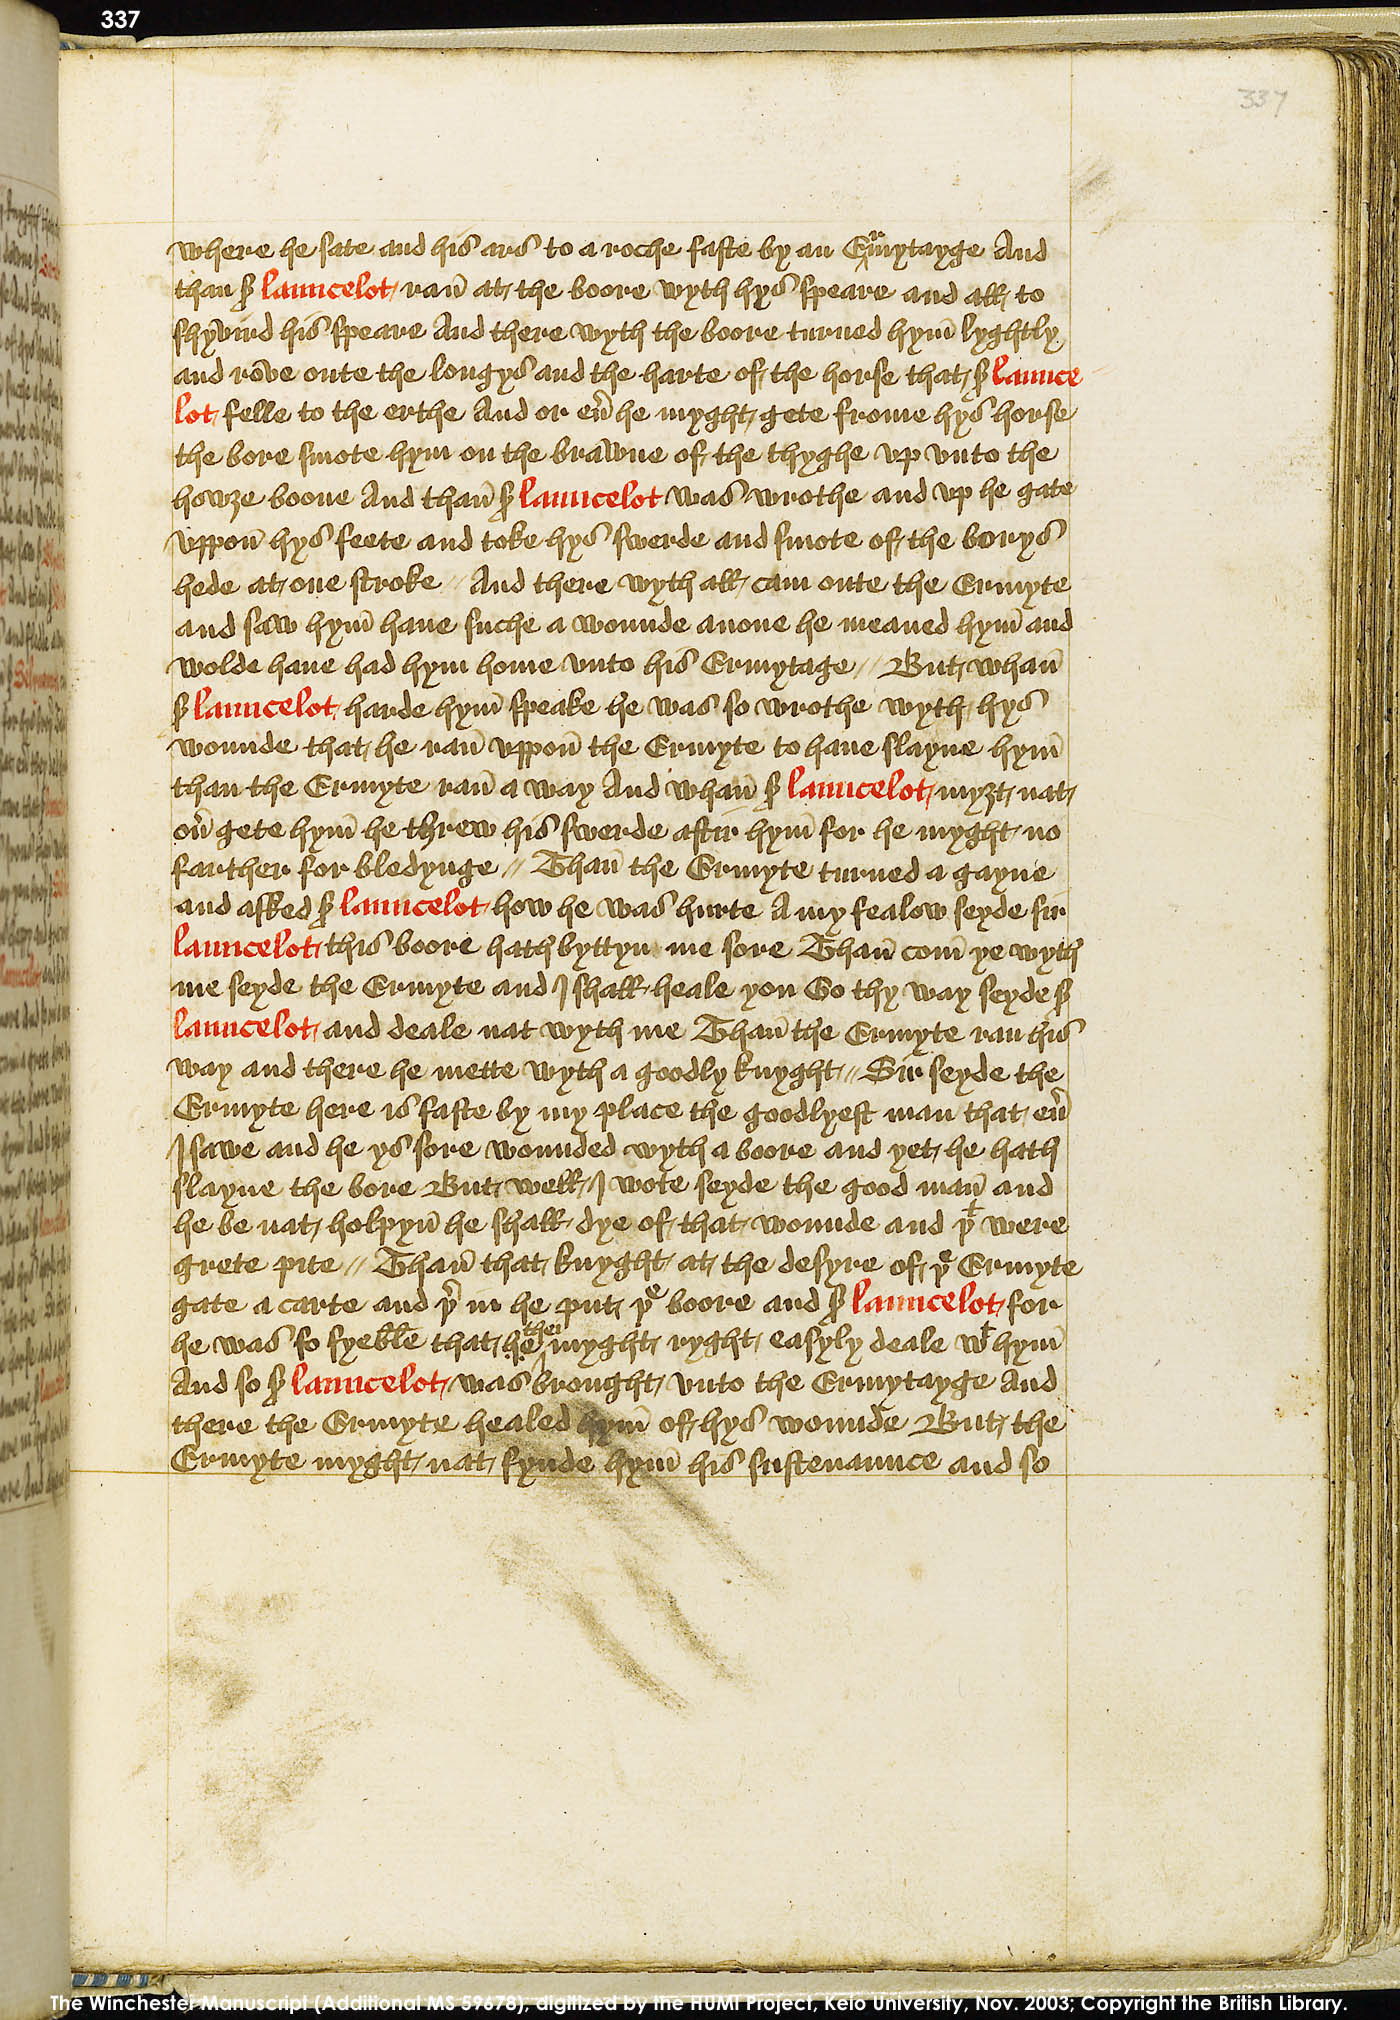 337
337
where he sate and his ars to a roche faste by an Ermytayge And
than sir launcelot ran at the boore wyth hys speare and all to
shyvird his speare And there wyth the boore turned hym lyghtly
and rove oute the longys and the harte of the horse that sir launce
lot felle to the erthe And or ever he myght gete frome hys horse
the bore smote hym on the brawne of the thyghe up unto the
howze boone And than sir launcelot was wrothe and up he gate
uppon hys feete and toke hys swerde and smote of the borys
hede at one stroke // And there wyth all cam oute the Ermyte
and saw hym have suche a wounde anone he meaned hym and
wolde have had hym home unto his Ermytage // But whan
sir launcelot harde hym speake he was so wrothe wyth hys
wounde that he ran uppon the Ermyte to have slayne hym
than the Ermyte ran a way And whan sir launcelot myȝt nat
over gete hym he threw his swerde aftir hym for he myght no
farther for bledynge // Than the Ermyte turned a gayne
and asked sir launcelot how he was hurte A my fealow seyde sir
launcelot this boore hath byttyn me sore Than com ye wyth
me seyde the Ermyte and I shall heale you Go thy way seyde sir
launcelot and deale nat wyth me Than the Ermyte ran his
way and there he mette wyth a goodly knyght // Sir seyde the
Ermyte here is faste by my place the goodlyest man that ever
I sawe and he ys sore wounded wyth a boore and yet he hath
slayne the bore But well I wote seyde the good man and
he be nat holpyn he shall dye of that wounde and þt were
grete pite // Than that knyght at the desyre of þe Ermyte
gate a carte and þer in he put þe boore and sir launcelot for
he was so fyeble that he they myght ryght easyly deale wt hym
And so sir launcelot was brought unto the Ermytayge And
there the Ermyte healed hym of hys wounde But the
Ermyte myght nat fynde hym his sustenaunce and so
The Winchester Manuscript (Additional MS 59678), digitized by the HUMI Project, Keio University, Nov. 2003; Copyright the British Library.